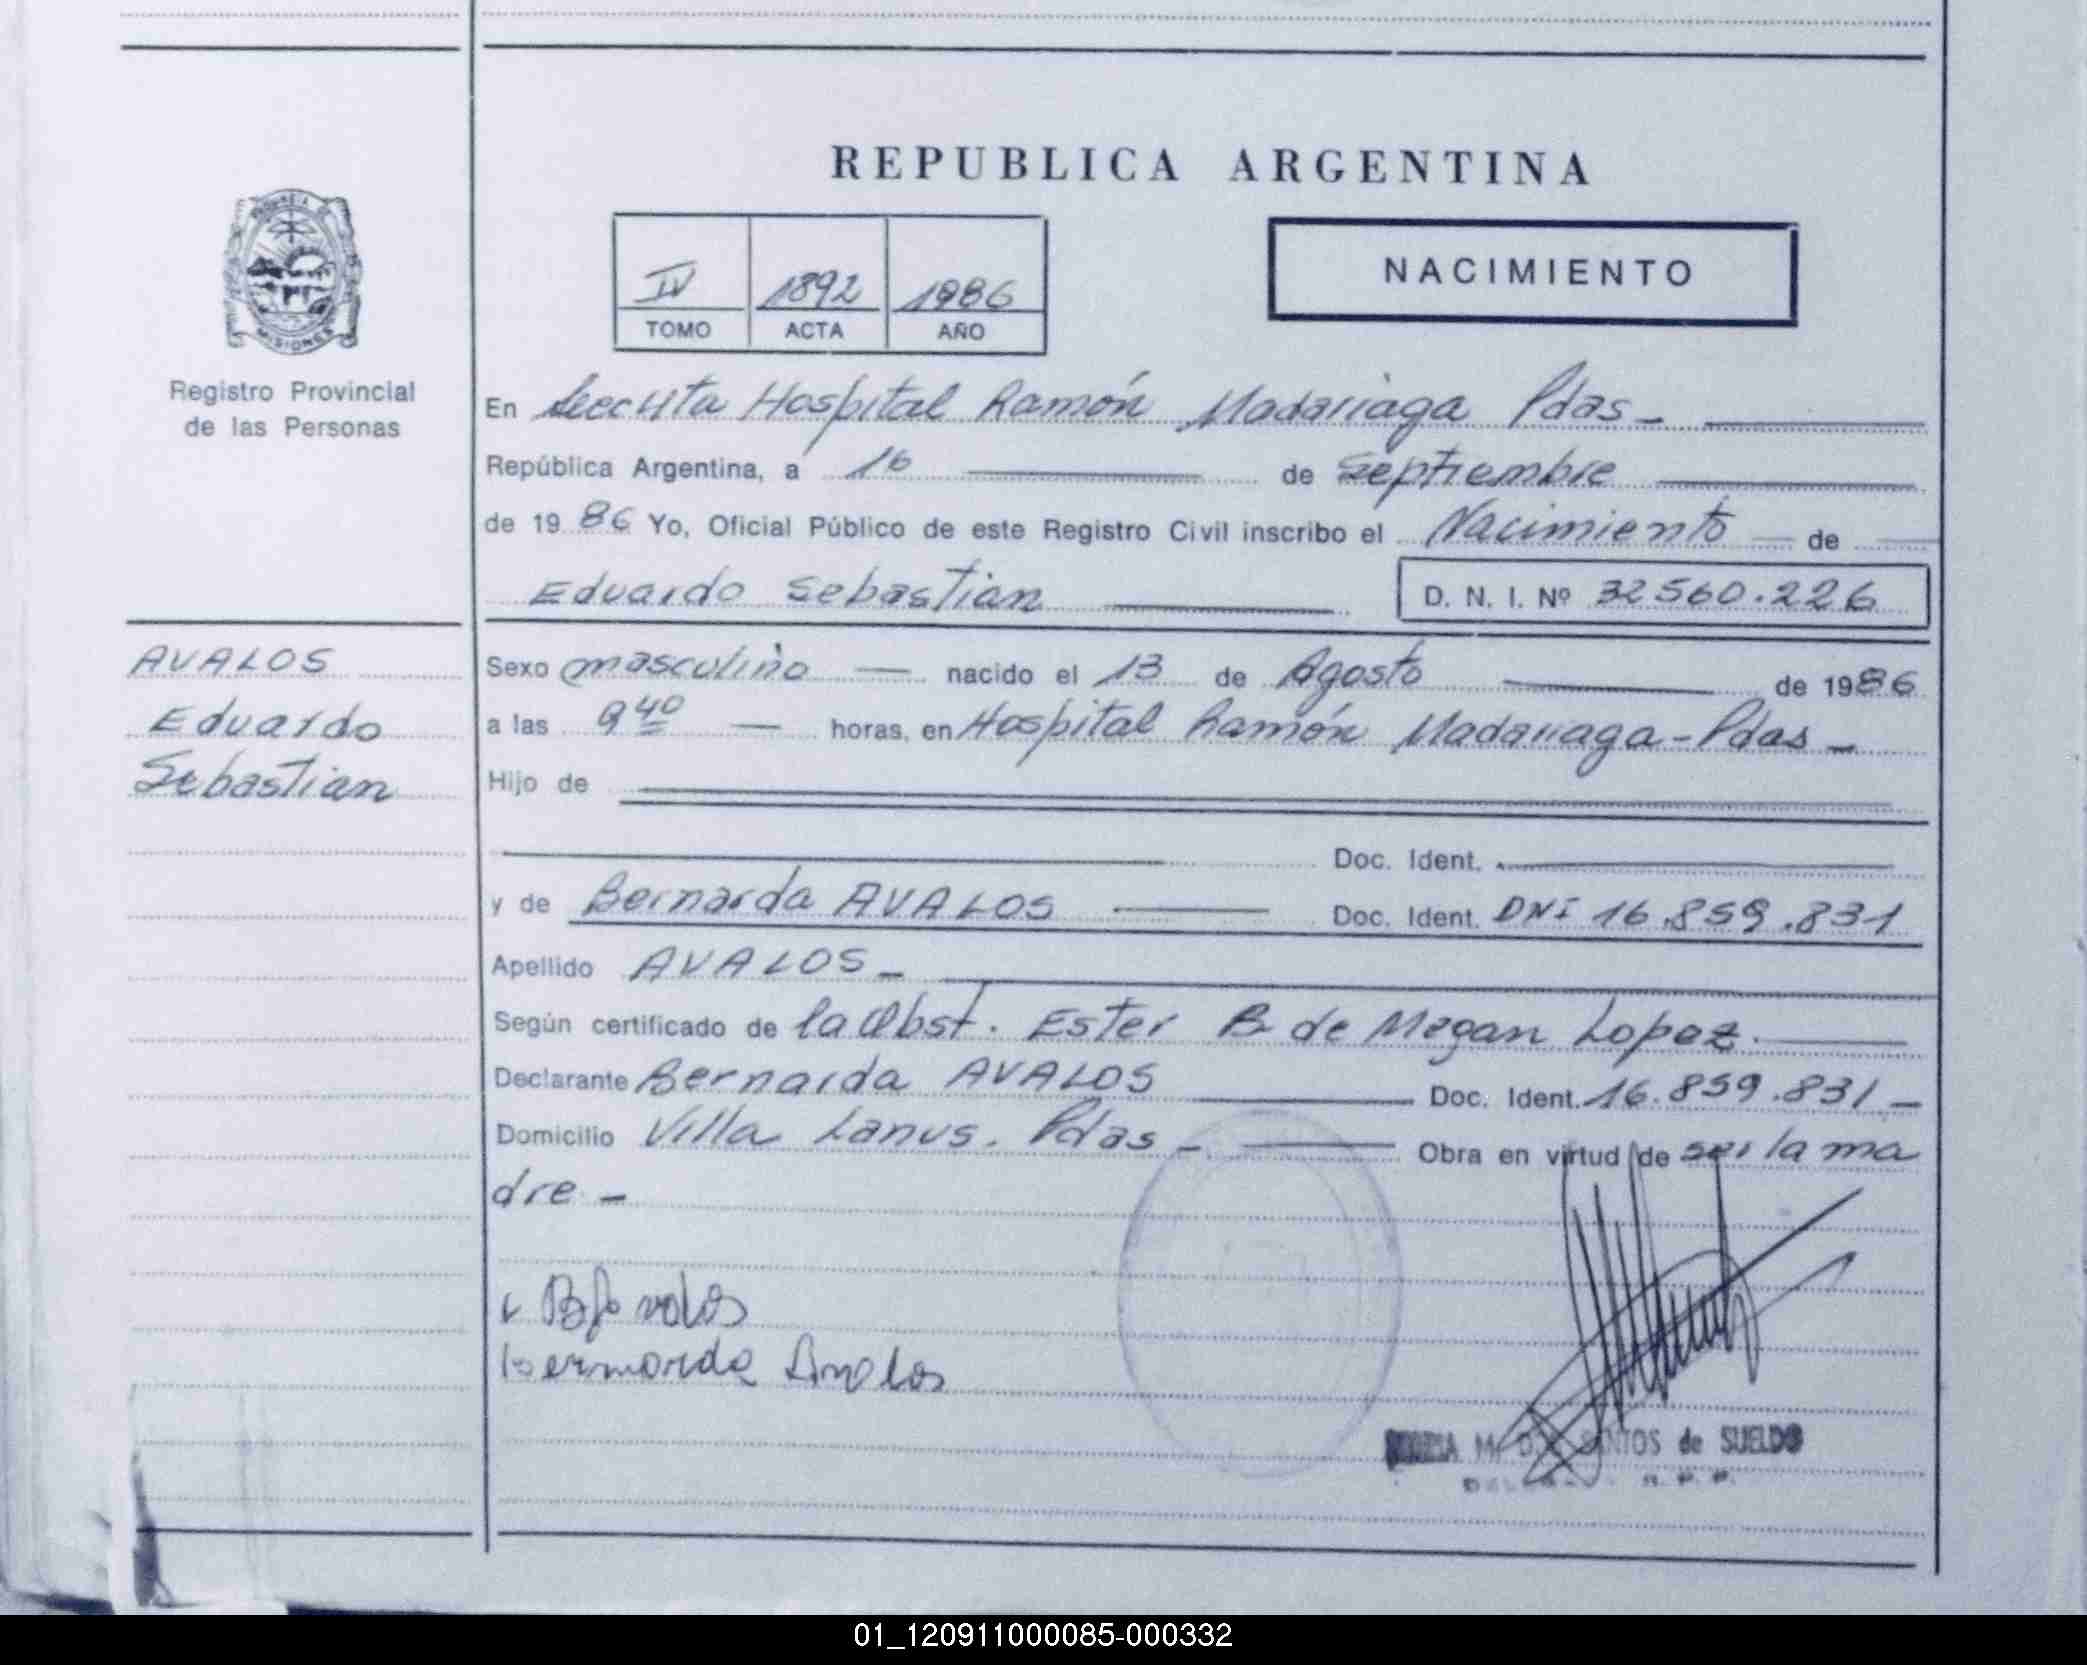 REPUBLICA ARGENTINA
IV 1892 1986
TOMO ACTA AÑO
NACIMIENTO
PROVINCIA DE
MISIONES
Registro Provincial
de las Personas
En Seccita Hospital Ramón Madariaga Pdas -
República Argentina, a 16 de Septiembre
de 1986 Yo, Oficial Público de este Registro Civil inscribo el Nacimiento de
Eduardo Sebastian D. N. I. Nº 32560.226
AVALOS
Eduardo
Sebastian
Sexo masculino nacido el 13 de Agosto de 1986
a las 9 40 horas, en Hospital Ramón Madariaga - Pdas -
Hijo de
Doc. Ident.
y de Bernarda AVALOS Doc. Ident. DNI 16.859.831
Apellido AVALOS -
Según certificado de la Obst. Ester B de Megan Lopez.
Declarante Bernarda AVALOS Doc. Ident. 16.859.831 -
Domicilio Villa Lanus. Pdas - Obra en virtud de ser la ma
dre -
Bernarda Avalos
M. D. SANTOS de SUELDO
01_120911000085-000332